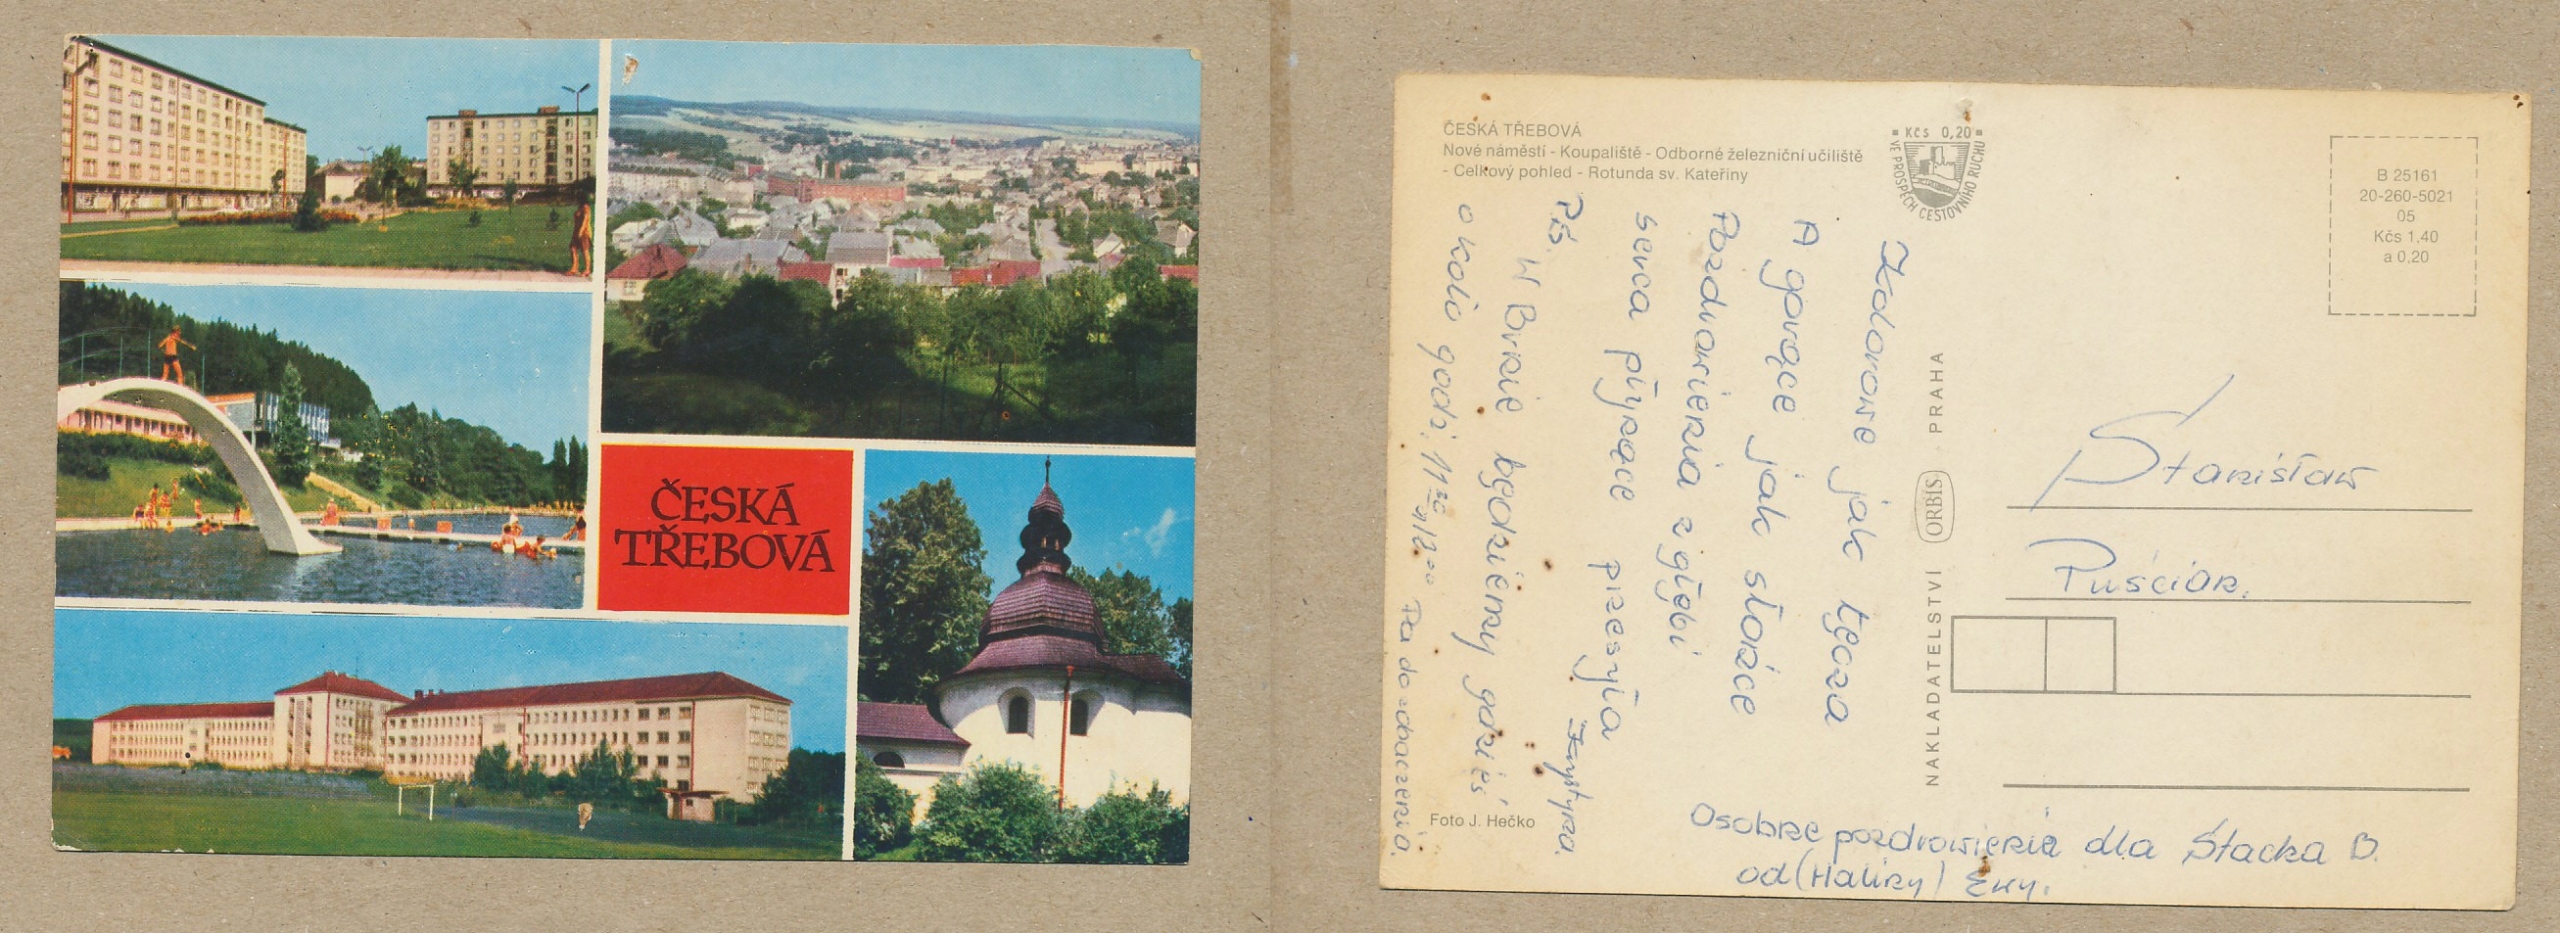 ČESKÁ
TŘEBOVÁ
ČESKÁ TŘEBOVÁ
Nové náměstí - Koupaliště - Odborné železniční učiliště
- Celkový pohled - Rotunda sv. Kateřiny
Kčs 0,20
VE PROSPĚCH CESTOVNÍHO RUCHU
B 25161
20-260-5021
05
Kčs 1,40
a 0,20
Kolorowe jak tęcza
A gorące jak słońce
Pozdrowienia z głębi
serca płynące przesyła
Krystyna
P.S. W Brnie będziemy gdzieś
około godz. 11 30 - 12 00 Pa do zobaczenia.
NAKLADATELSTVÍ ORBIS PRAHA
Stanisław
Puścian.
Foto J. Hečko
Osobne pozdrowienia dla Stacka B.
od (Haliny)